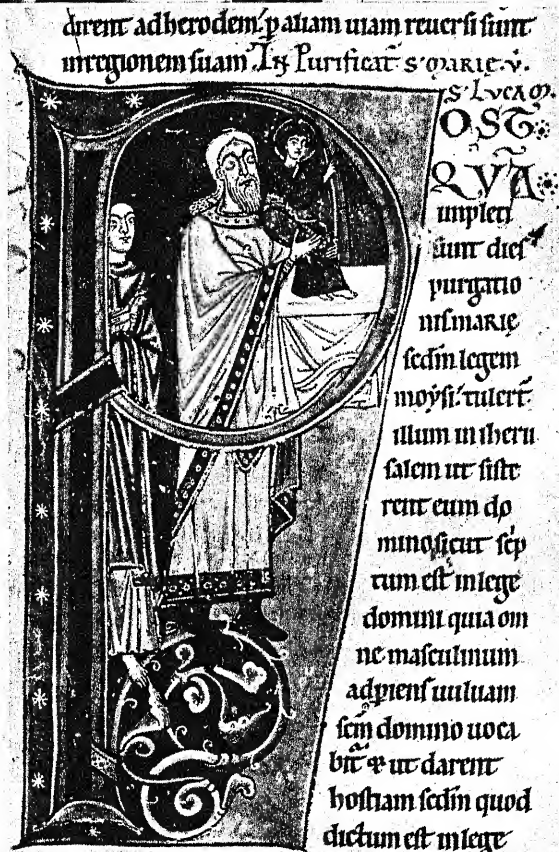 dirent ad herodem. p aliam uiam reuersi sunt
in regionem suam. In Purificat s marie v.
S LVCAM.
OSTQ
QVÃ
impleti
sunt dies
purgatio
nis marię
scdm legem
moysi. tulert
illum in iheru
salem ut siste
rent eum do
mino, sicut scp
tum est in lege
domini quia om
ne masculinum
adpiens uuluam
scm domino uoca
bit & ut darent
hostiam scdm quod
dictum est in lege